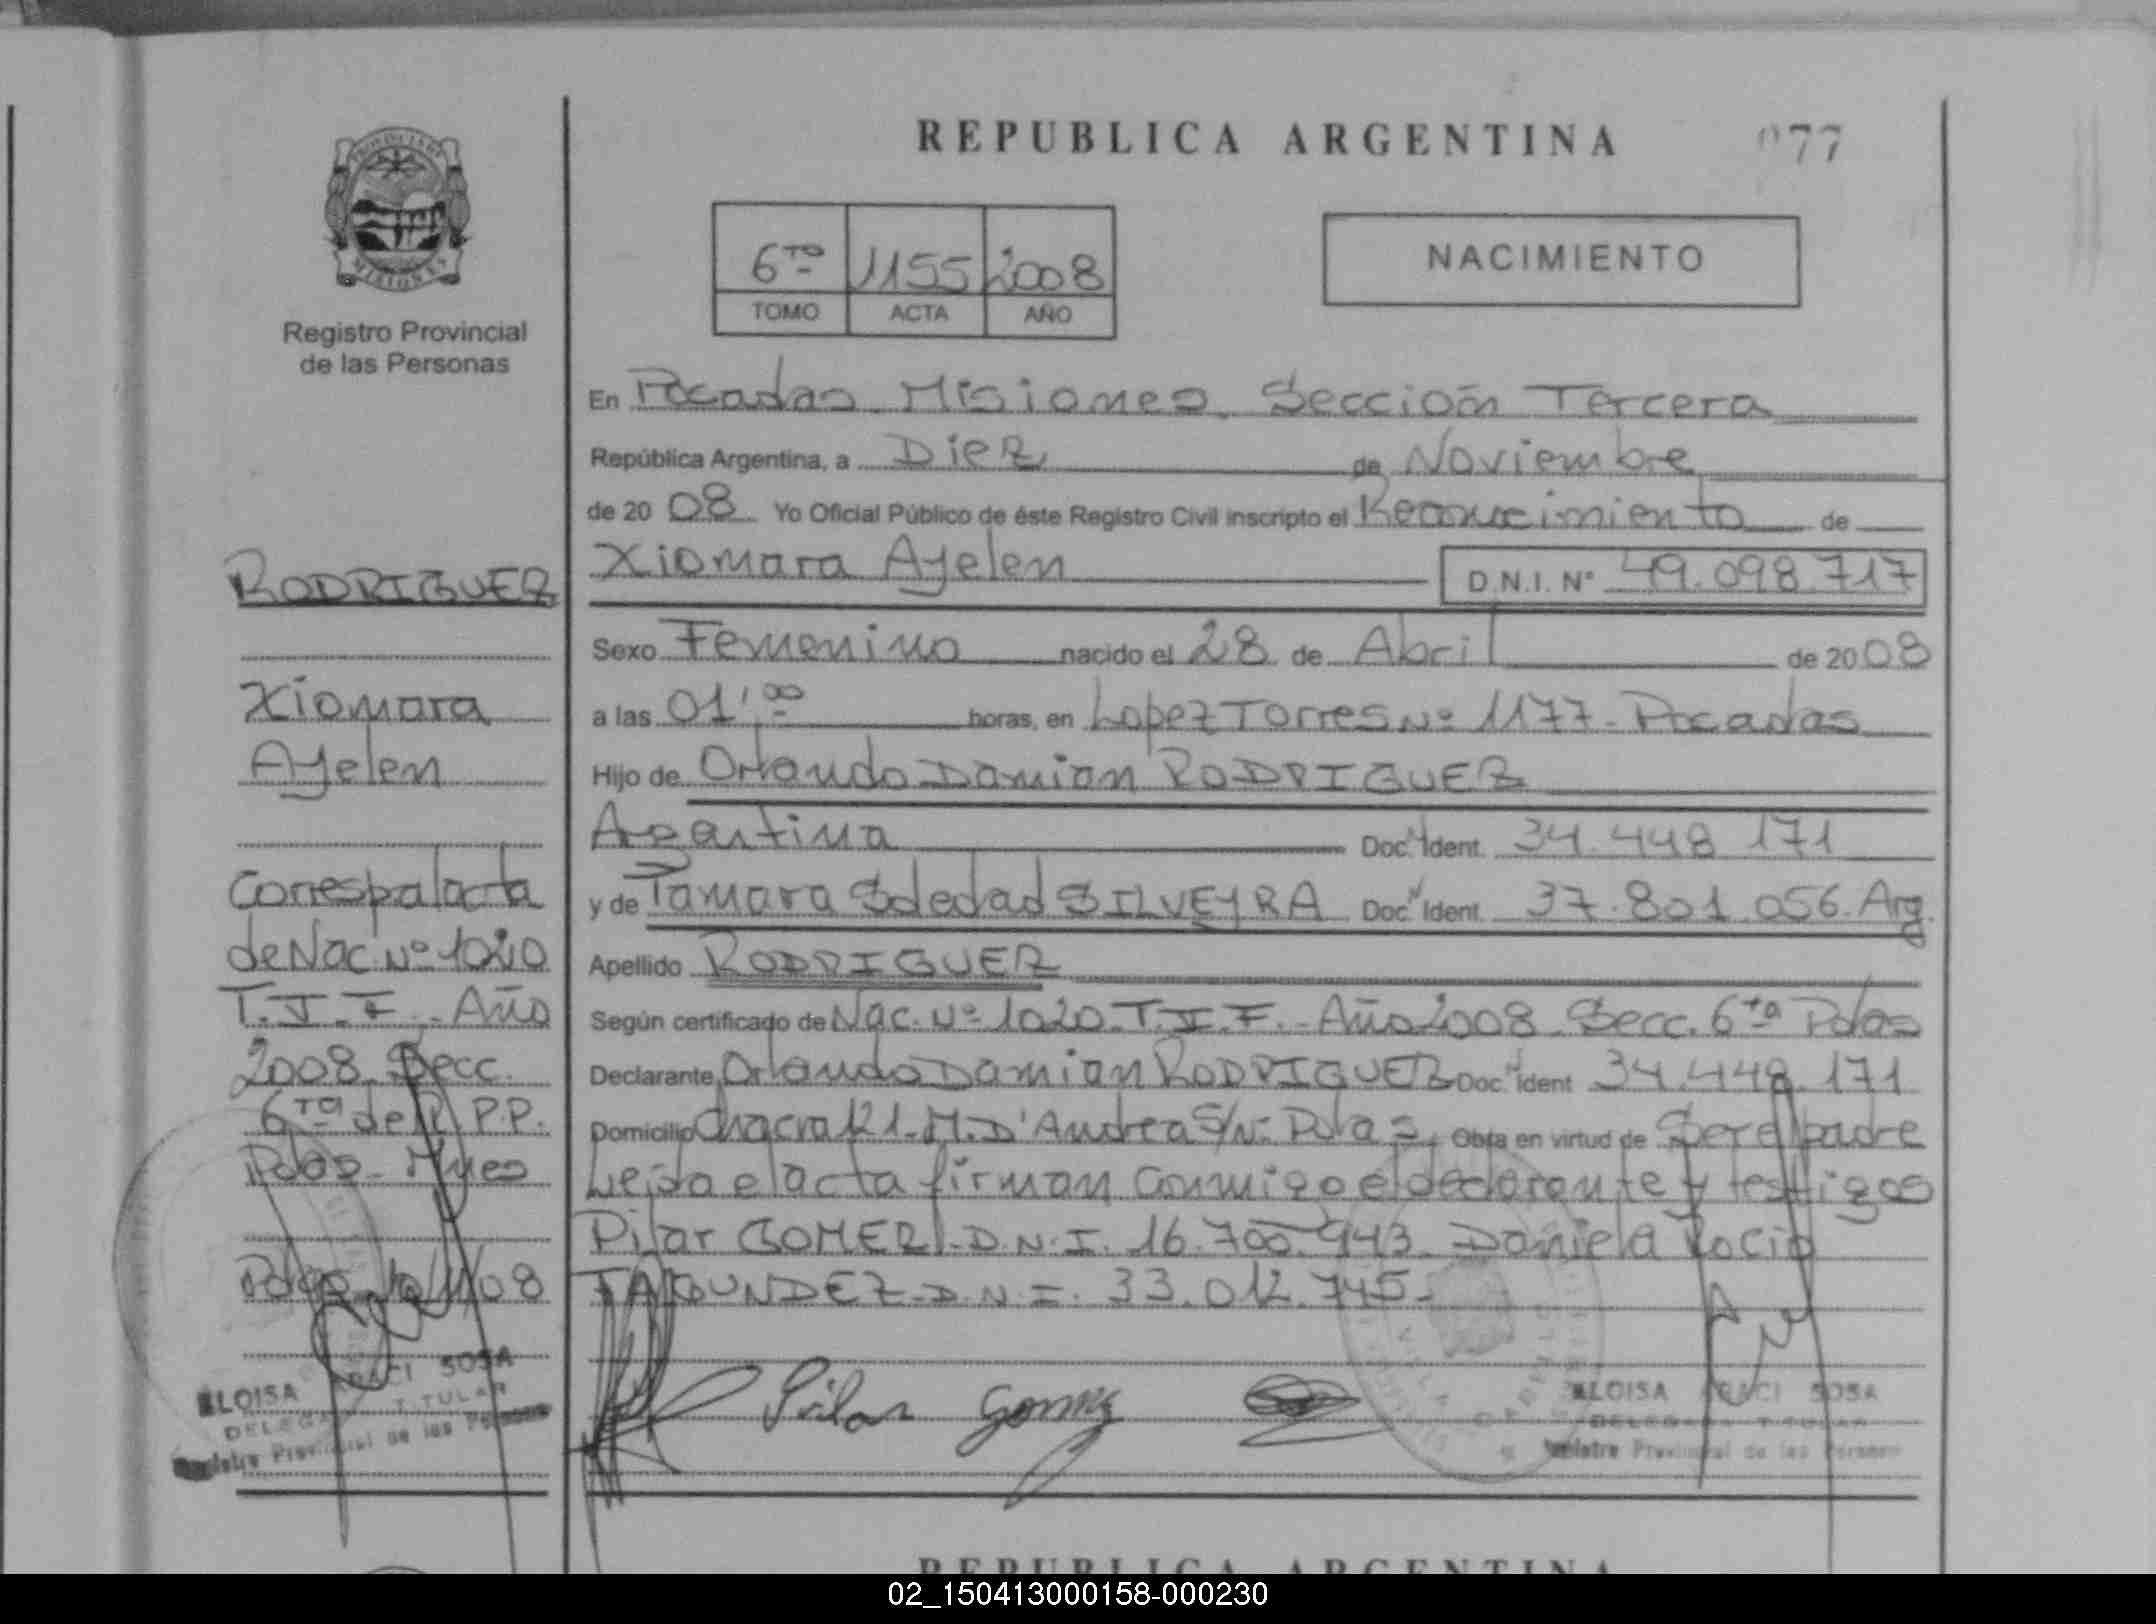 REPUBLICA ARGENTINA
077
PROVINCIA DE
MISIONES
Registro Provincial
de las Personas
6ᵗᵒ 1155 2008
TOMO ACTA AÑO
NACIMIENTO
En Posadas Misiones, Sección Tercera
República Argentina, a Diez de Noviembre
de 20 08 Yo Oficial Público de éste Registro Civil inscripto el Reconocimiento de
Xiomara Ayelen D.N.I. N° 49.098.717
Sexo Femenino nacido el 28 de Abril de 20 08
a las 01,⁰⁰ horas, en Lopez Torres Nº 1177 - Posadas
Hijo de Orlando Damian RODRIGUEZ
Argentina Doc. Ident. 34.448 171
y de Tamara Soledad SILVEYRA Doc. Ident. 37.801.056. Arg.
Apellido RODRIGUEZ
Según certificado de Nac. Nº 1020. T.J.F. - Año 2008. Secc. 6ᵗᵃ Pdas
Declarante Orlando Damian RODRIGUEZ Doc. Ident 34.448.171
Domicilio Chacra 121 - M. D'Andrea S/Nº Pdas, Obra en virtud de Ser el padre
Leída el acta firman conmigo el declarante y testigos
Pilar GOMEZ - D.N.I. 16.700.943. Daniela Rocio
FAGUNDEZ - D.N.I. 33.012.745-
Pilar Gomez
ELOISA ARACI SOSA
DELEGADA TITULAR
Registro Provincial de las Personas
RODRIGUEZ
Xiomara
Ayelen
Corresp al acta
de Nac. Nº 1020
T.J.F. - Año
2008. Secc.
6ᵗᵃ del R.P.P.
Pdas - Mnes
Pdas 10/11/08
ELOISA ARACI SOSA
DELEGADA TITULAR
Registro Provincial de las Personas
REPUBLICA ARGENTINA
02_150413000158-000230